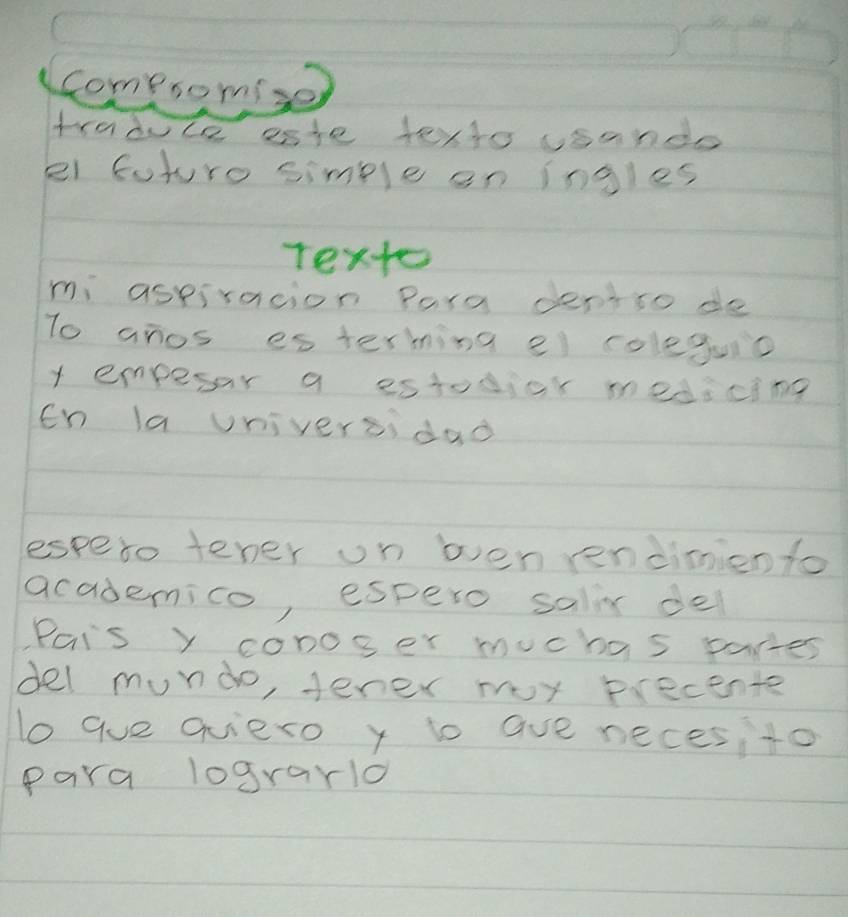 Compromiso
traduce este texto usando
el futuro simple en ingles
Texto
mi aspiracion Para dentro de
10 años es termina el coleguio
y empesar a estudiar medicina
En la universidad
espero tener un buen rendimiento
academico, espero salir del
Pais y conoser muchas partes
del mundo, tener muy precente
lo que quiero y lo que necesito
para lograrlo